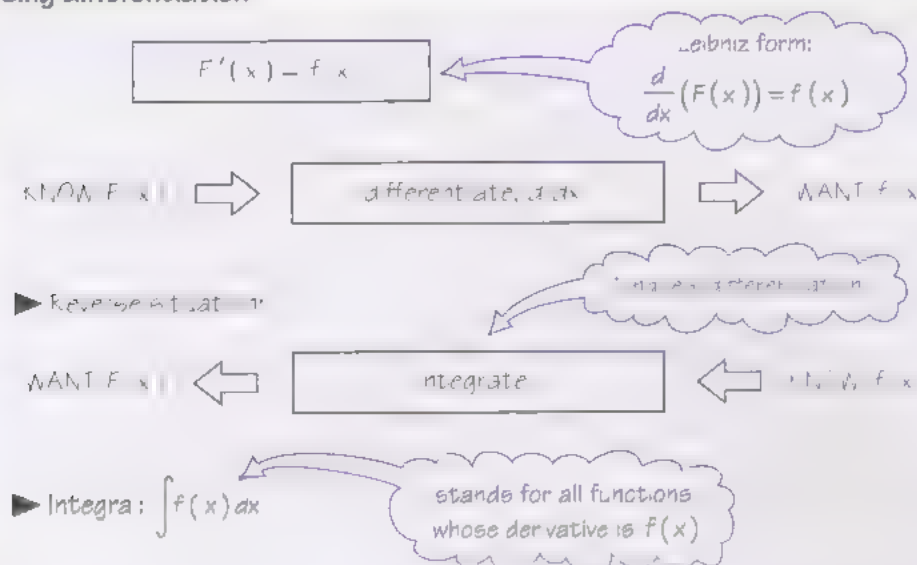 F'(x) = f x
Leibniz form:
d/dx (F(x)) = f(x)
KNOW F x
differentiate, d dx
WANT f x
Reverse situation
WANT F x
integrate
f x
Integral: ∫f(x)dx
stands for all functions
whose derivative is f(x)